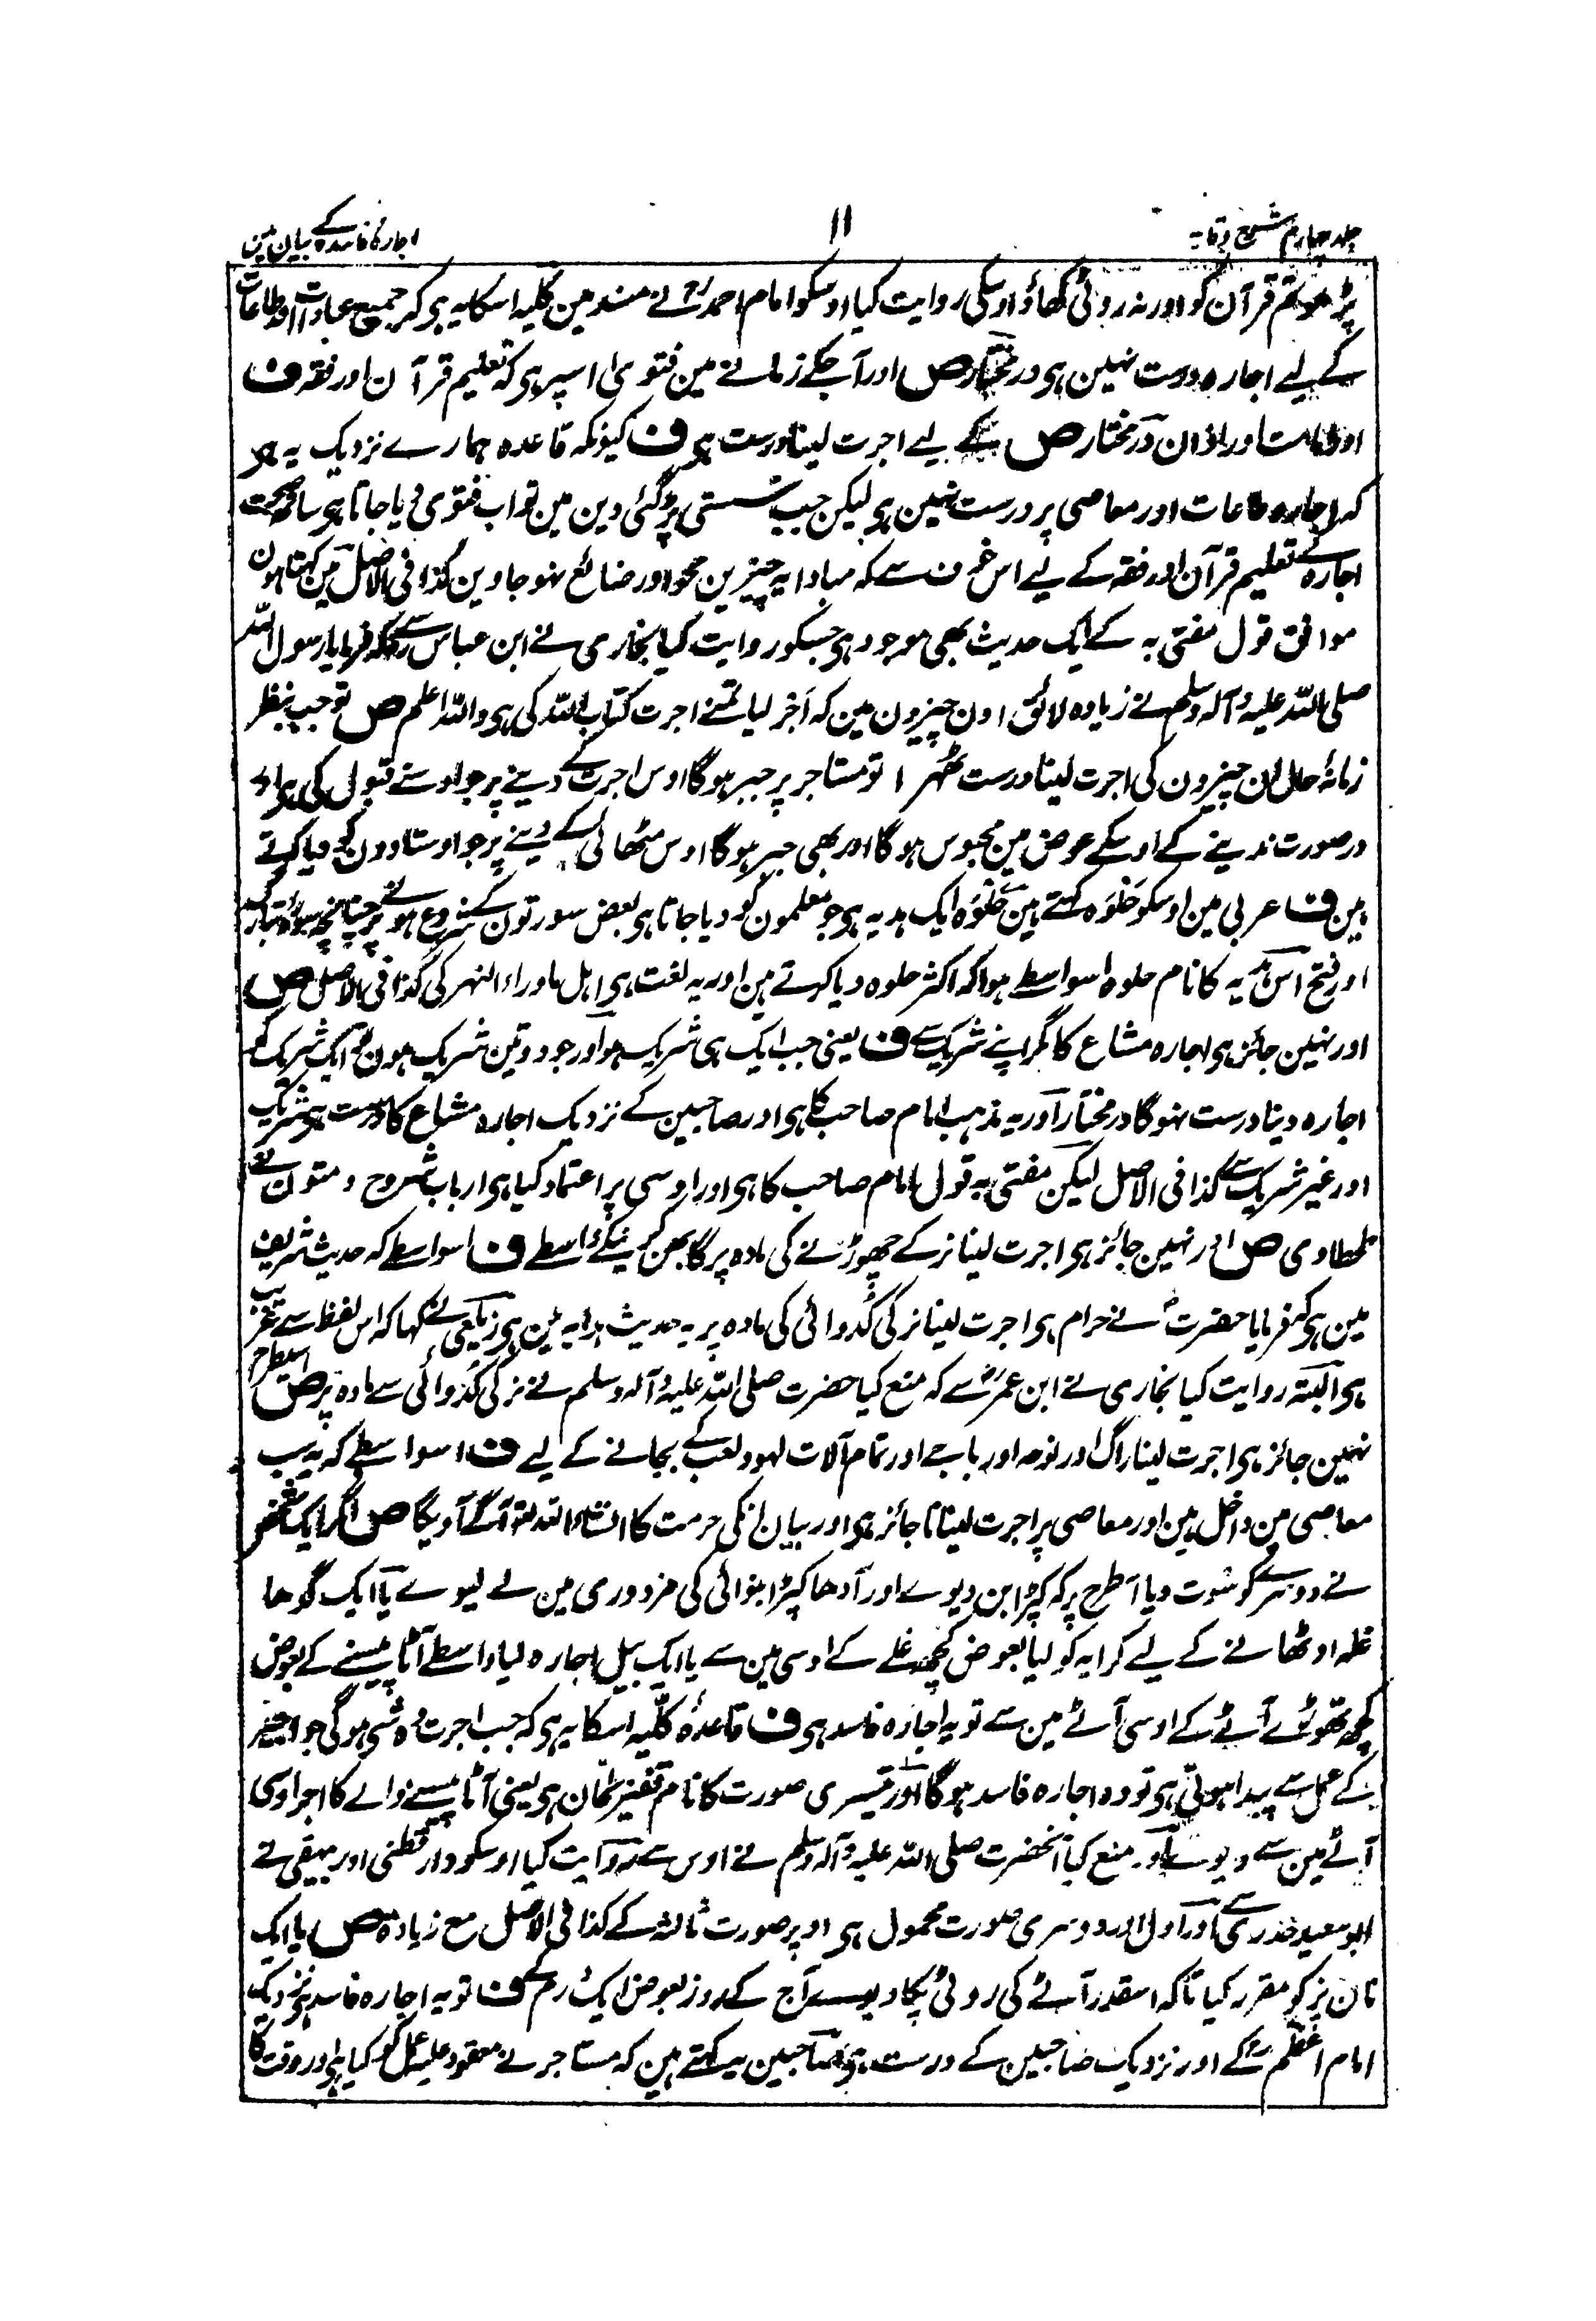 جلد چہارم شرح وقایہ
۱۱
اجارۂ فاسدہ کے بیان مین
پڑھو تم قرآن کو اور نہ روٹی کھاؤ اوسکی روایت کیا اوسکو امام احمدؒ نے مسند مین کلیہ اسکا یہ ہی کہ جمیع عبادات اور طاعات
کے لیے اجارہ درست نہین ہی درمختار ص اور آجکے زمانے مین فتوی اسپر ہی کہ تعلیم قرآن اور فقہ ف
اور امامت اور اذان درمختار ص کے لیے اجرت لینا درست ہی ف کیونکہ قاعدہ ہمارے نزدیک یہ ہی
کہ اجارہ طاعات اور معاصی پر درست نہین ہی لیکن جب سستی پڑگئی دین مین تو اب فتوی دیا جاتا ہی ساتھ صحت
اجارہ کے تعلیم قرآن اور فقہ کے لیے اس خوف سے کہ مبادا یہ چیزین محو اور ضائع نہو جاوین کذا فی الاصل مین کہتا ہون
موافق قول مفتی بہ کے ایک حدیث بھی موجود ہی جسکو روایت کیا بخاری نے ابن عباسؓ سے کہ فرمایا رسول اللہ
صلی اللہ علیہ وآلہ وسلم نے زیادہ لائق اون چیزون مین کہ اجر لیا تمنے اجرت کتاب اللہ کی ہی واللہ اعلم ص تو جب بنظر
زمانۂ حال ان چیزون کی اجرت لینا درست ٹھہرا تو مستاجر پر جبر ہوگا اوس اجرت کے دینے پر جو اوسنے قبول کی ہی اور
درصورت ندینے کے اوسکے عوض مین محبوس ہوگا اور بھی جبر ہوگا اوس مٹھائی کے دینے پر جو اوستادون کو دیا کرتے
ہین ف عربی مین اوسکو حَلْوَہ کہتے ہین حَلْوَہ ایک ہدیہ ہی جو معلمون کو دیا جاتا ہی بعض سورتون کے شروع ہونے پر چنانچہ سورۂ تبارک
اور فتح اس ہدیہ کا نام حلوہ اسواسطے ہوا کہ اکثر حلوہ دیا کرتے ہین اور یہ لغت ہی اہل ماوراء النہر کی کذا فی الاصل ص
اور نہین جائز ہی اجارہ مشاع کا مگر اپنے شریک سے ف یعنی جب ایک ہی شریک ہو اور جو دو تین شریک ہون تو ایک شریک کو
اجارہ دینا درست نہوگا درمختار اور یہ مذہب امام صاحب کا ہی اور صاحبین کے نزدیک اجارہ مشاع کا درست ہی شریک
اور غیر شریک سے کذا فی الاصل لیکن مفتی بہ قول امام صاحب کا ہی اور اوسی پر اعتماد کیا ہی ارباب شروح و متون نے
طحطاوی ص اور نہین جائز ہی اجرت لینا نر کے چھوڑنے کی مادہ پر گابھن کرنیکے واسطے ف اسواسطے کہ حدیث شریف
مین ہی کہ فرمایا حضرتؐ نے حرام ہی اجرت لینا نر کی کُدوائی کی مادہ پر یہ حدیث ہدایہ مین ہی زیلعی نے کہا کہ اس لفظ سے غریب
ہی البتہ روایت کیا بخاری نے ابن عمرؓ سے کہ منع کیا حضرت صلی اللہ علیہ وآلہ وسلم نے نر کی کُدوائی سے مادہ پر ص اسیطرح
نہین جائز ہی اجرت لینا راگ اور نوحہ اور باجے اور تمام آلات لہو ولعب کے بجانے کے لیے ف اسواسطے کہ یہ سب
معاصی مین داخل ہین اور معاصی پر اجرت لینا ناجائز ہی اور بیان انکی حرمت کا انشاء اللہ تعالی آگے آویگا ص اگر ایک شخص
نے دوسرے کو سُوت دیا اسطرح پر کہ کپڑا بن دیوے اور آدھا کپڑا بنوائی کی مزدوری مین لے لیوے یا ایک گدھا
غلہ اوٹھانے کے لیے کرایہ کو لیا بعوض کچھ غلے کے اوسی مین سے یا ایک بیل اجارہ لیا واسطے آٹا پیسنے کے بعوض
کچھ تھوڑے آٹے کے اوسی آٹے مین سے تو یہ اجارہ فاسد ہی ف قاعدۂ کلیہ اسکا یہ ہی کہ جب اجرت وہ شی ہوگی جو اجیر
کے عمل سے پیدا ہوتی ہی تو وہ اجارہ فاسد ہوگا اور تیسری صورت کا نام قفیز طحان ہی یعنی آٹا پیسنے والے کا اجر اوسی
آٹے مین سے دیوے اور منع کیا آنحضرت صلی اللہ علیہ وآلہ وسلم نے اوس سے روایت کیا اوسکو دارقطنی اور بیہقی نے
ابو سعید خدری سے اور اول اور دوسری صورت محمول ہی اوپر صورت ثالثہ کے کذا فی الاصل مع زیادہ ص یا ایک
نان پز کو مقرر کیا تاکہ اسقدر آٹے کی روٹی پکا دیوے آج کے روز بعوض ایک درم کے ف تو یہ اجارہ فاسد ہی نزدیک
امام اعظمؒ کے اور نزدیک صاحبین کے درست ہی صاحبین یہ کہتے ہین کہ مستاجر نے معقود علیہ عمل کو کیا ہی اور وقت کا